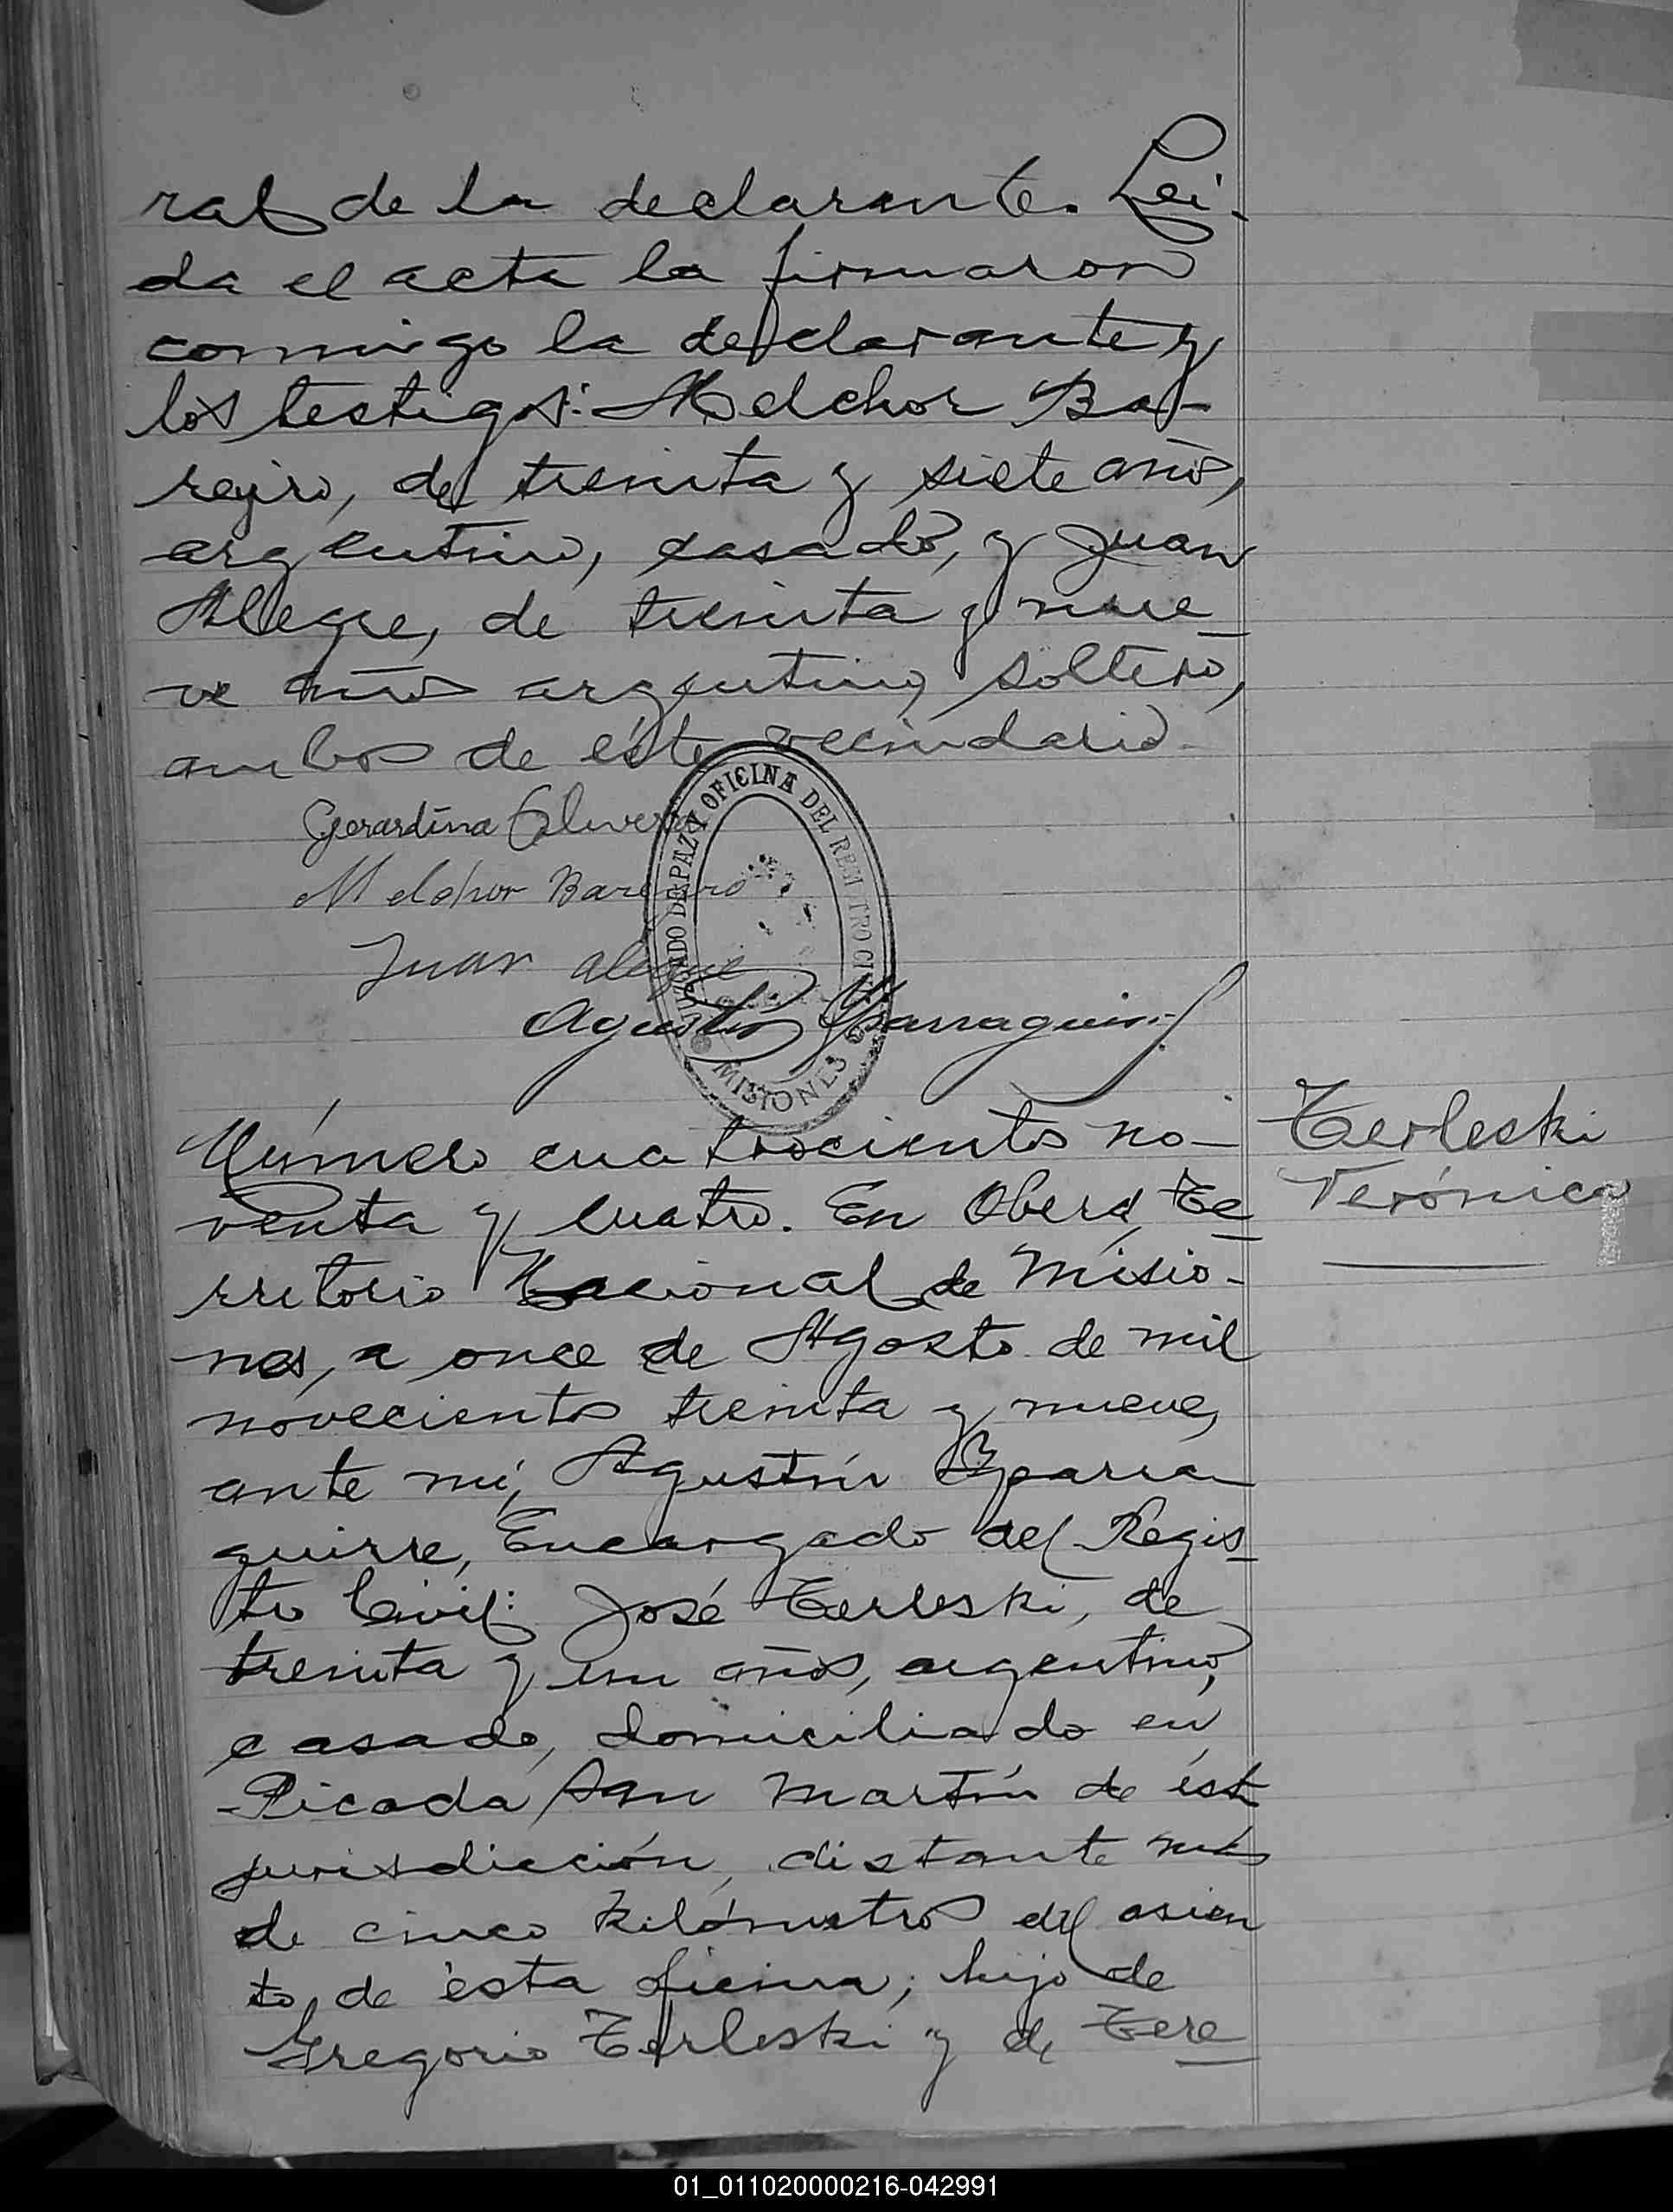 ral de la declarante. Lei-
da el acta la firmaron
conmigo la declarante y
los testigos: Melchor Ba-
reiro, de treinta y siete años,
argentino, casado, y Juan
Alegre, de treinta y nue-
ve años argentino, soltero,
ambos de éste vecindario.
Gerardina
Melchor Bareiro
Juan alegre
JUZGADO DE PAZ Y OFICINA DEL REGISTRO CIVIL
MISIONES
Agustín Yparraguirre
Número cuatrocientos no-
venta y cuatro. En Oberá, Te
rritorio Nacional de Misio-
nes, a once de Agosto de mil
novecientos treinta y nueve,
ante mí, Agustín Yparra
guirre, Encargado del Regis
tro Civil: José Terleski, de
treinta y un años, argentino,
casado, domiciliado en
Picada San Martín de ésta
jurisdicción, distante más
de cinco kilómetros del asien
to de ésta oficina; hijo de
Gregorio Terleski y de Tere
Terleski
Verónica
01_011020000216-042991